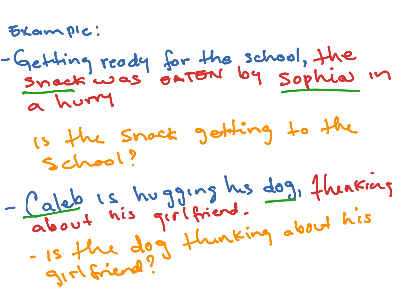 Example:
- Getting ready for the school, the
snack was EATEN by Sophia in
a hurry
is the snack getting to the
School?
- Caleb is hugging his dog, thinking
about his girlfriend.
- is the dog thinking about his
girlfriend?